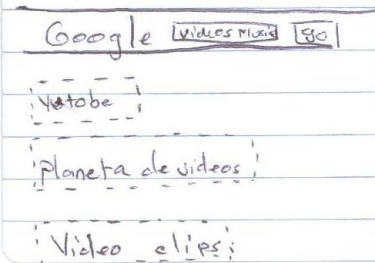 Google videos Music go
Yutobe
Planeta de videos
Video clips